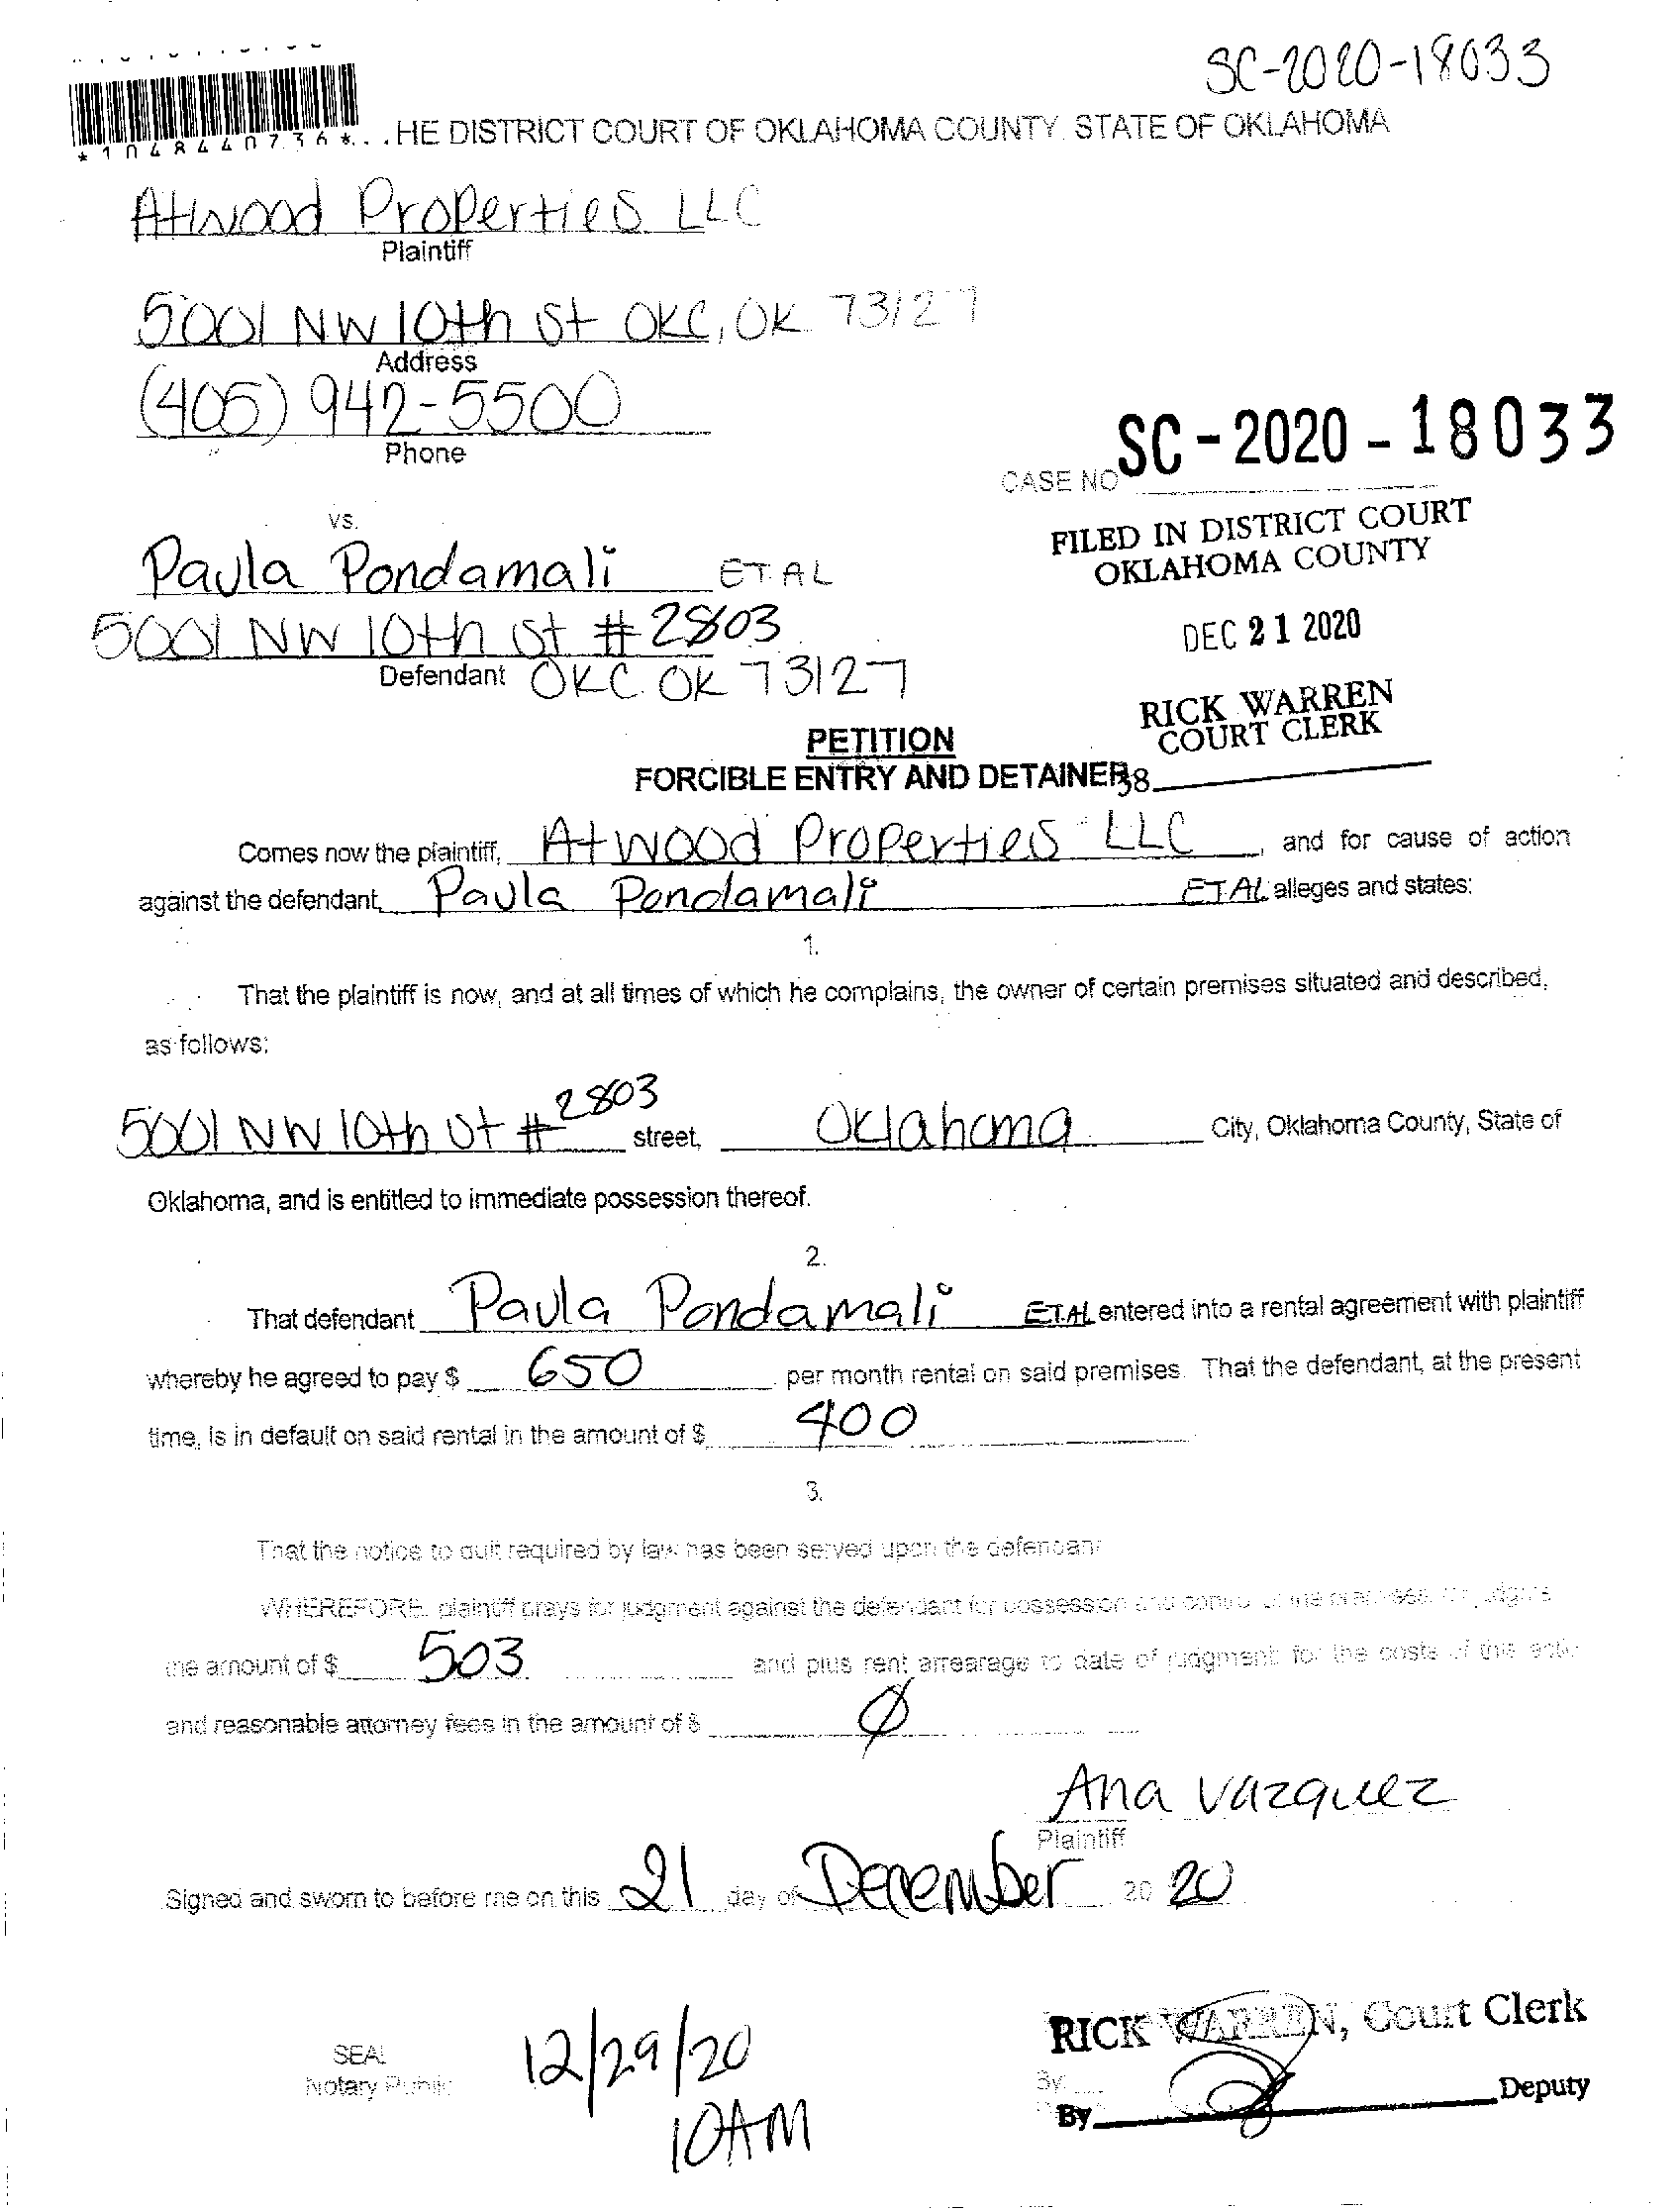 SC-2020-18033
*1048440736*...HE DISTRICT COURT OF OKLAHOMA COUNTY. STATE OF OKLAHOMA
Atwood Properties LLC
Plaintiff
5001 NW 10th St OKC, OK 73127
Address
(405) 942-5500
Phone
CASE NO SC-2020-18033
FILED IN DISTRICT COURT
OKLAHOMA COUNTY
vs.
Paula Pondamali ET AL
5001 NW 10th St # 2803
DEC 21 2020
Defendant OKC OK 73127
RICK WARREN
COURT CLERK
PETITION
FORCIBLE ENTRY AND DETAINER
38
Comes now the plaintiff, Atwood Properties LLC, and for cause of action
against the defendant, Paula Pondamali ET AL alleges and states:
1.
That the plaintiff is now, and at all times of which he complains, the owner of certain premises situated and described,
as follows:
5001 NW 10th St # 2803 street, Oklahoma City, Oklahoma County, State of
Oklahoma, and is entitled to immediate possession thereof.
2.
That defendant Paula Pondamali ET AL entered into a rental agreement with plaintiff
whereby he agreed to pay $ 650 per month rental on said premises. That the defendant, at the present
time, is in default on said rental in the amount of $ 400
3.
That the notice to quit required by law has been served upon the defendant
WHEREFORE, plaintiff prays for judgment against the defendant for possession and control of the premises, for judgme
the amount of $ 503 and plus rent arrearage to date of judgment: for the costs of this actio
and reasonable attorney fees in the amount of $ Ø
Ana Vazquez
Plaintiff
Signed and sworn to before me on this 21 day of December 20 20
RICK WARREN, Court Clerk
SEAL
Notary Public
12/29/20
10AM
By
By Deputy